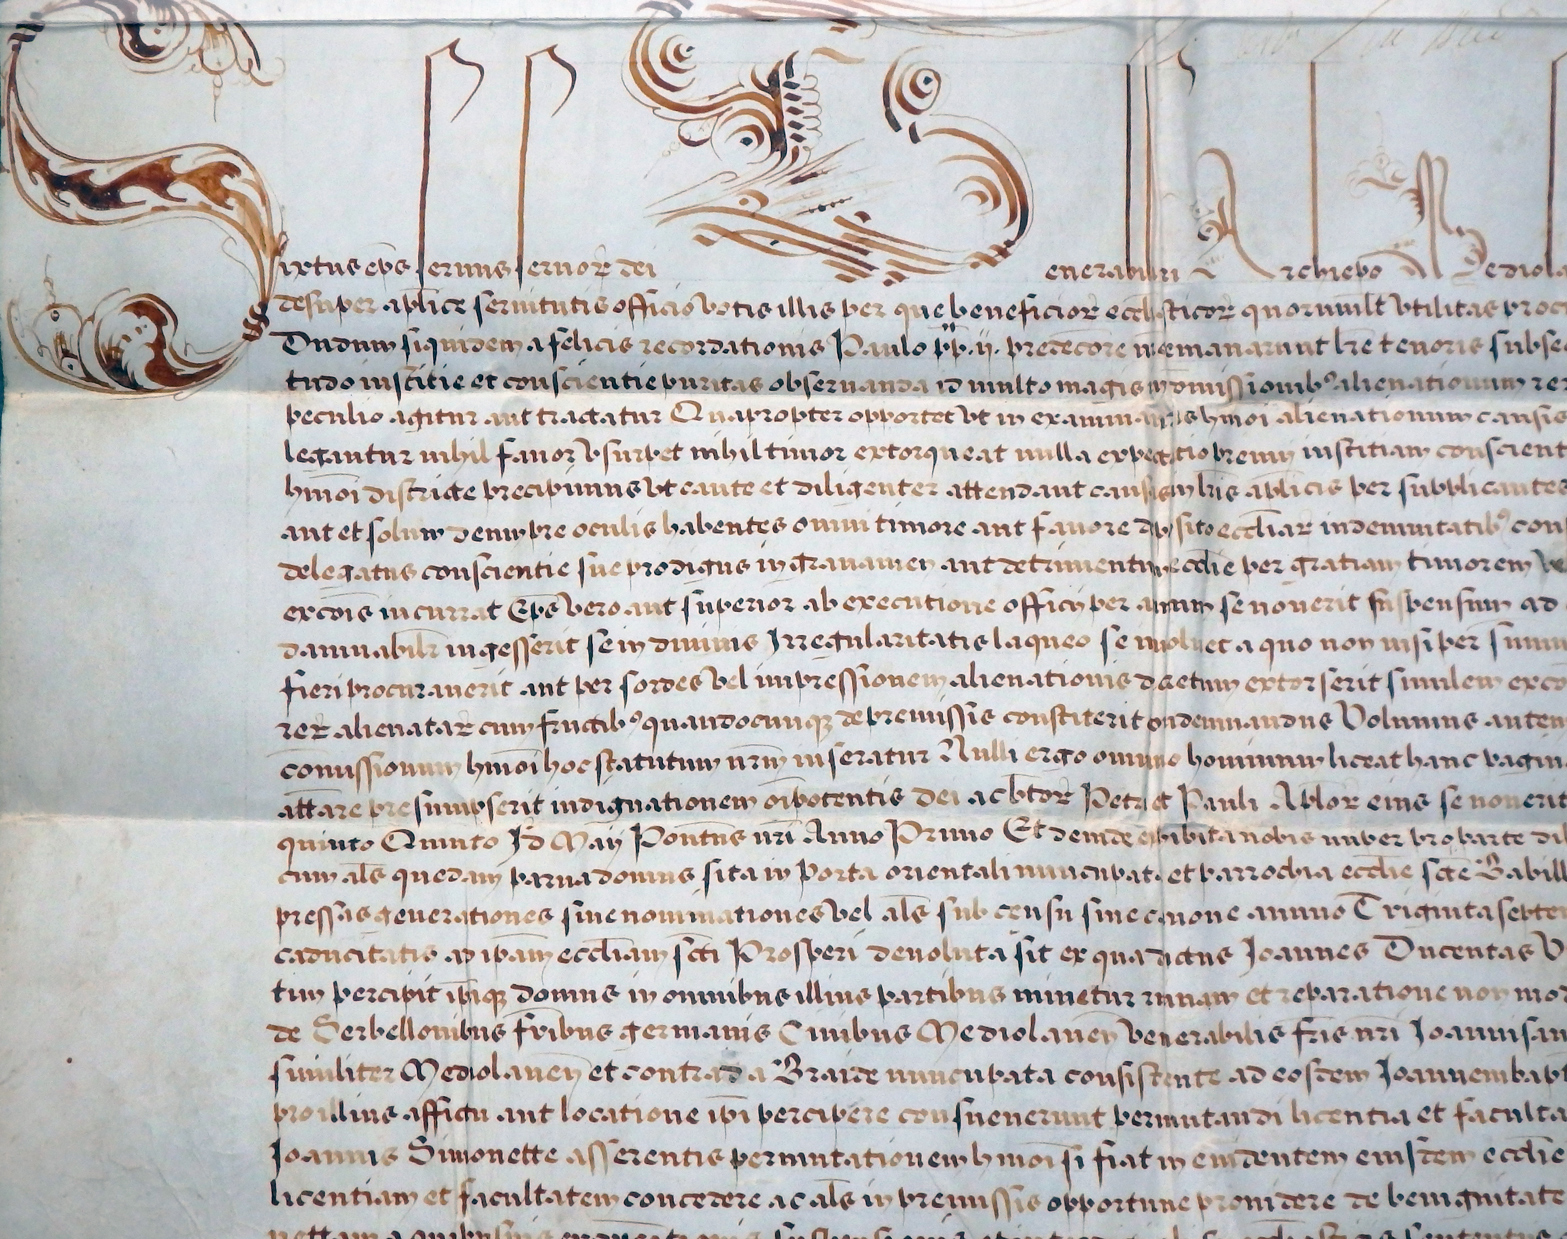 Sixtus eps servus servor dei Venerabili Archiepo Mediola
desuper aplice servitutis officio votis illis per que beneficior ecclasticor quorumlt utilitas proc
Dudum siquidem a felicis recordationis Paulo pp. ii. predecore emanarunt lre tenoris subse
tudo iustitie et conscientie puritas observanda id multo magis in dmissionib9 alienationum rer
peculio agitur aut tractatur Quapropter opportet ut in examinandis hmoi alienationum causis
legantur nihil favor usurpet nihil timor extorqueat nulla expectatio premii iustitiam conscient
hmoi districte precipimus ut caute et diligenter attendant causis in lris aplicis per supplicantes
aut et solum deum pre oculis habentes omni timore aut favore deposito eccliar indemnitatib9 con
delegatus conscientie sue prodigus in gravamen aut detrimentum ecclie per gratiam timorem ve
excois incurrat Eps vero aut superior ab executione officii per annum se noverit suspensum ad
damnabilr ingesserit se in divinis Irregularitatis laqueo se involvet a quo non nisi per summ
fieri procuraverit aut per sordes vel impressionem alienationis decretum extorserit similem exco
rer alienatar cum fructib9 quandocunq de premissis constiterit condemnandus Volumus autem
comissionum hmoi hoc statutum nrm inseratur Nulli ergo omnino hominum liceat hanc pagin
attare presumpserit indignationem oipotentis dei ac btor Petri et Pauli Aplor eius se noverit
quinto Quinto Id Maii Pontus nri Anno Primo Et deinde exhibita nobis nuper pro parte di
cum als quedam parva domus sita in Porta orientali nuncupat et parrochia ecclie scte Babill
pressas generationes sive nominationes vel als sub censu sive canone annuo Triginta septe
caducitatis ad ipam eccliam scti Prosperi devoluta sit ex qua dictus Joannes Ducentas
tim percipit ipiq domus in omnibus illius partibus minetur ruinam et reparatione non mo
de Serbellonibus fribus germanis Civibus Mediolanen Venerabilis fris nri Joannis an
similiter Mediolanen et contrada Braide nuncupata consistente ad eosdem Joannembapt
pro illius affictu aut locatione ipi percipere consueverunt permutandi licentia et faculta
Joannis Simonette asserentis permutationem hmoi si fiat in evidentem eiusdem ecclie
licentiam et facultatem concedere ac als in premissis opportune providere de benignitate